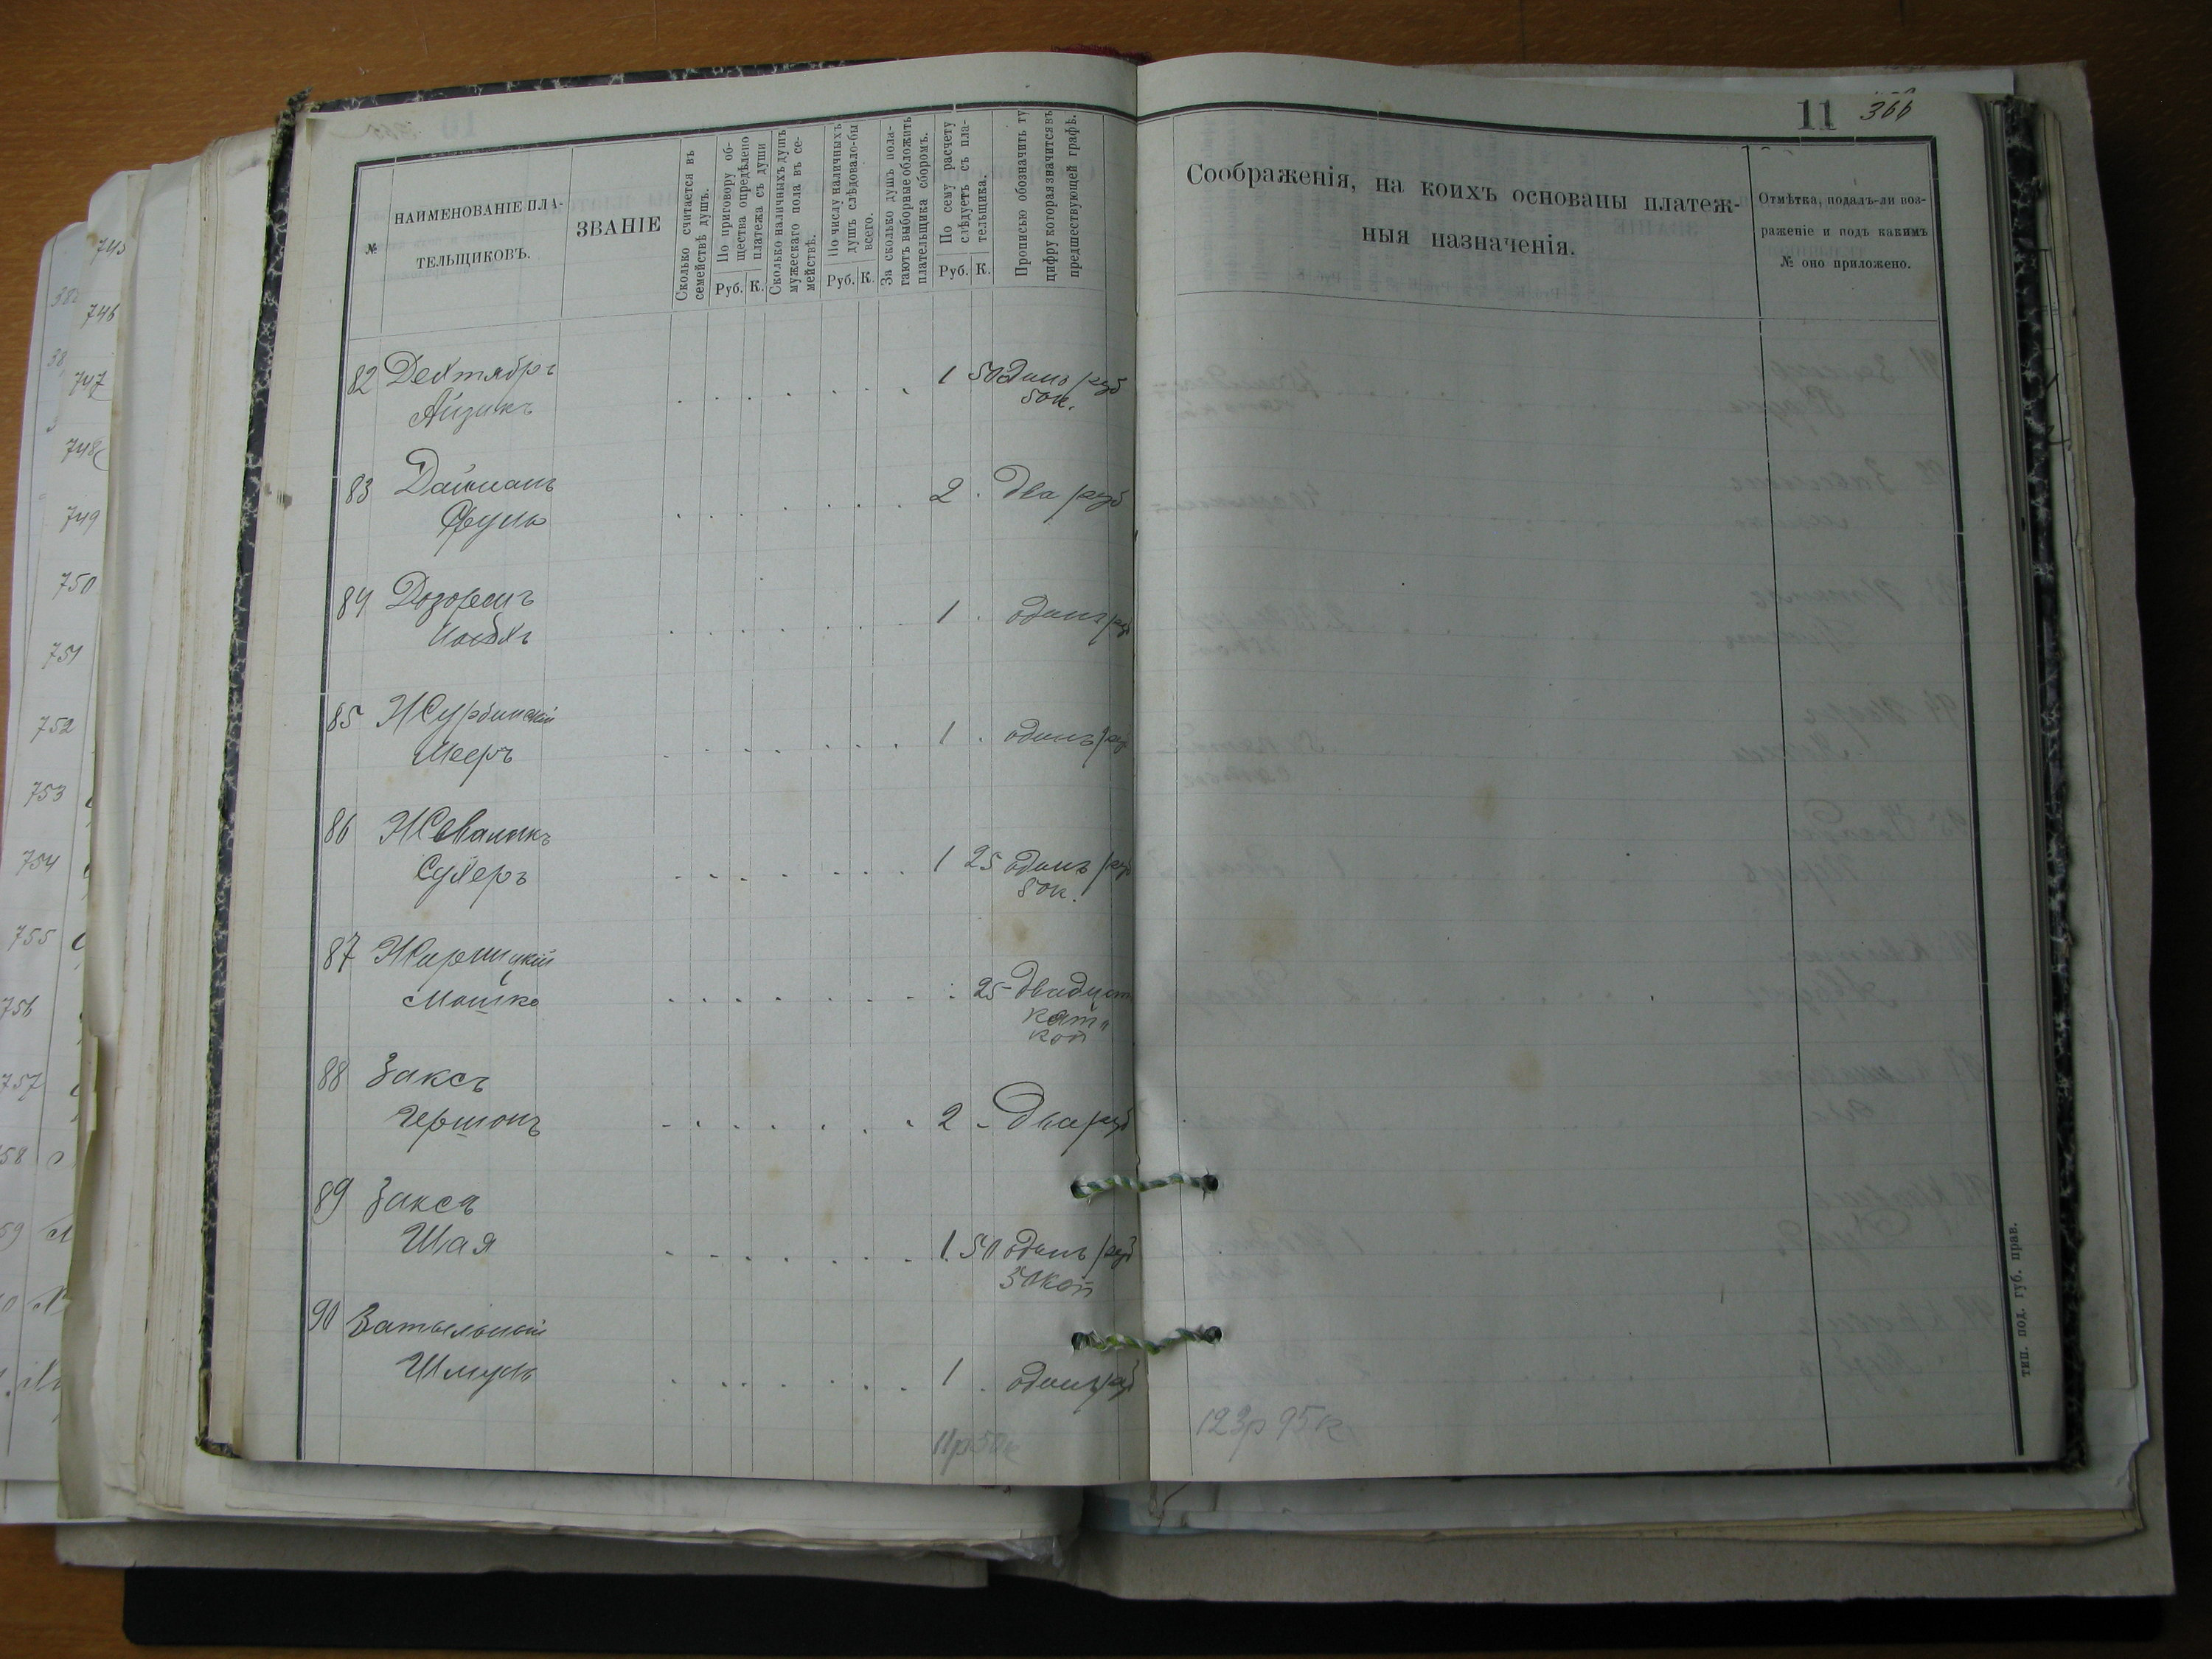 11 366
№
НАИМЕНОВАНІЕ ПЛА-
ТЕЛЬЩИКОВЪ.
ЗВАНІЕ
Сколько считается въ
семействѣ душъ.
По приговору об-
щества опредѣлено
платежа съ души
Руб. К.
Сколько наличныхъ душъ
мужескаго пола въ се-
мействѣ.
По числу наличныхъ
душъ слѣдовало-бы
всего.
Руб. К.
За сколько душъ пола-
гаютъ выборные обложить
плательщика сборомъ.
По сему расчету
слѣдуетъ съ пла-
тельщика.
Руб. К.
Прописью обозначить ту
цифру которая значится въ
предшествующей графѣ.
Соображенія, на коихъ основаны платеж-
ныя назначенія.
Отмѣтка, подалъ-ли воз-
раженіе и подъ какимъ
№ оно приложено.
82 Дехтябръ
Айзикъ 1 50 одинъ руб
50к.
83 Дайманъ
Фруль 2 . два руб
84
1 . одинъ руб
85 Журбинскій
Мееръ 1 . одинъ руб
86 Жевалюкъ
Сухеръ 1 25 одинъ руб
50к.
87
Мошко 25 двадцать
пять
коп
88 Заксъ
Гершонъ 2 - Два руб
89 Заксъ
Шая 1. 50 одинъ руб
50 коп
90 Затыльный
Шмуль 1 . одинъ руб
11р 50к
123р 95к
тип. под. губ. прав.
745
746
747
748
749
750
751
752
753
754
755
756
757
58
59